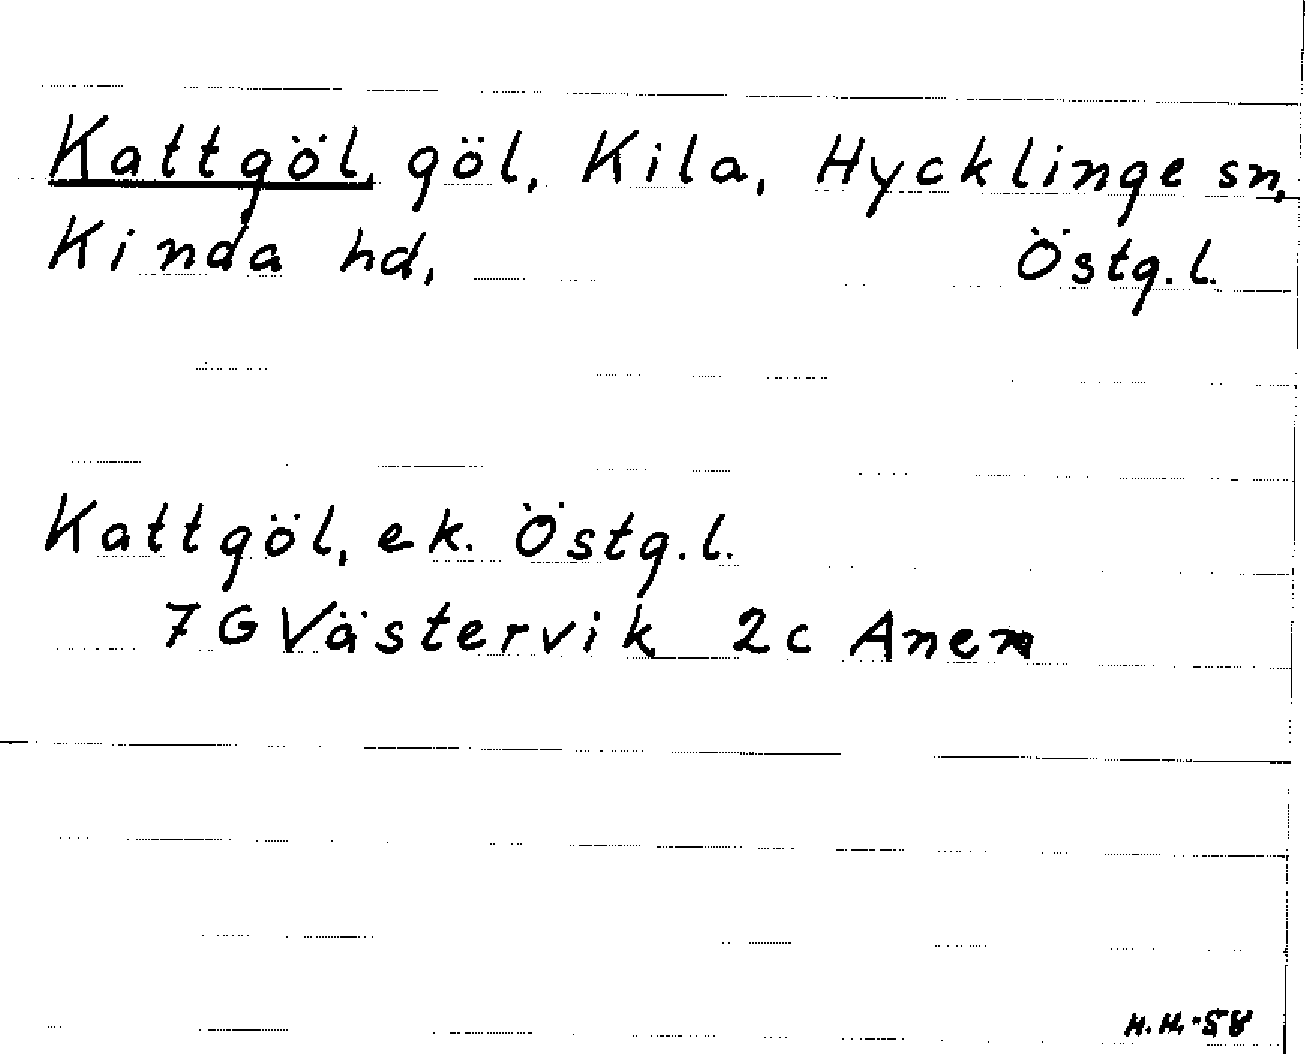 Kattgöl, göl, Kila, Hycklinge sn,
Kinda hd, Östg.l.
Kattgöl, ek. Östg.l.
7G Västervik 2c Anen
H.H.-58